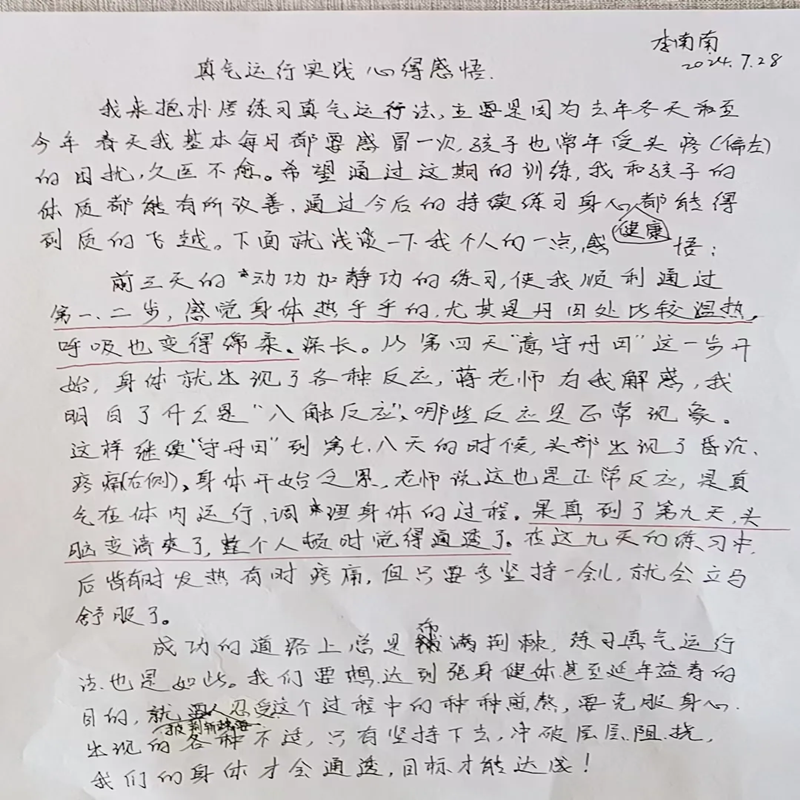 李南南
2024.7.28
真气运行实践心得感悟.
我来抱朴居练习真气运行法,主要是因为去年冬天和至
今年春天我基本每月都要感冒一次,孩子也常年受头疼(偏左)
的困扰,久医不愈。希望通过这期的训练,我和孩子的
体质都能有所改善,通过今后的持续练习身心健康都能得
到质的飞越。下面就浅谈一下我个人的一点感悟:
前三天的动功加静功的练习,使我顺利通过
第一、二步,感觉身体热乎乎的,尤其是丹田处比较温热,
呼吸也变得绵柔、深长。从第四天“意守丹田”这一步开
始,身体就出现了各种反应,蒋老师为我解惑,我
明白了什么是“八触反应”、哪些反应是正常现象。
这样继续“守丹田”到第七、八天的时候,头部出现了昏沉、
疼痛(右侧)、身体开始乏累,老师说这也是正常反应,是真
气在体内运行、调理身体的过程。果真到了第九天,头
脑变清爽了,整个人顿时觉得通透了。在这九天的练习中,
后背有时发热有时疼痛,但只要多坚持一会儿,就会立马
舒服了。
成功的道路上总是布满荆棘,练习真气运行
法也是如此。我们要想达到强身健体甚至延年益寿的
目的,就要忍受这个过程中的种种煎熬,要克服身心
出现的各种不适,只有坚持下去,冲破层层阻挠,
我们的身体才会通透,目标才能达成!